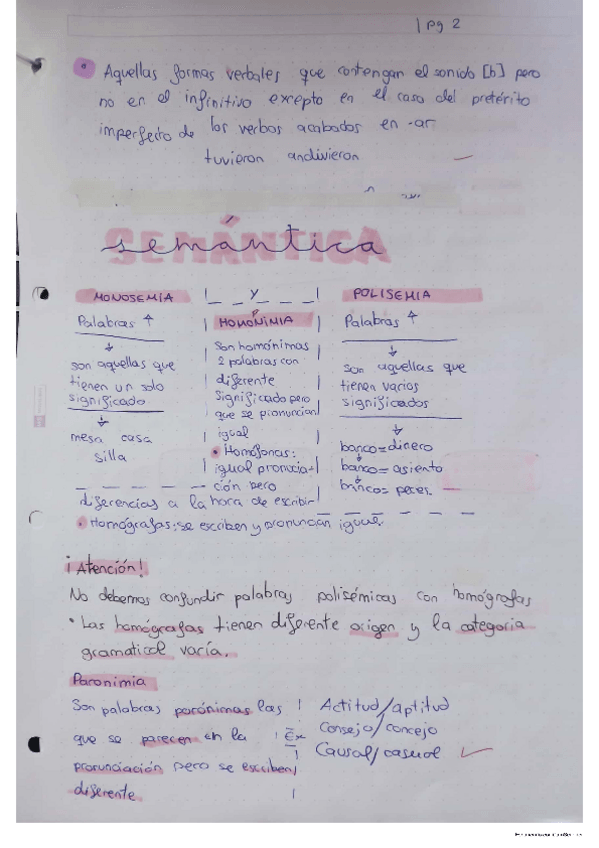 pg 2
Aquellas formas verbales que contengan el sonido [b] pero
no en el infinitivo excepto en el caso del pretérito
imperfecto de los verbos acabados en -ar
tuvieron andivieron
semántica
SEMÁNTICA
MONOSEMIA
Palabras ↑
↓
son aquellas que
tienen un solo
significado
↓
mesa casa
silla
Y
HOMONIMIA
Son homónimas
2 palabras con
diferente
significado pero
que se pronuncian
igual
• Homófonas:
igual pronucia-
ción pero
diferencias a la hora de escribir
• Homógrafas: se escriben y pronuncian igual
POLISEMIA
Palabras ↑
↓
son aquellas que
tienen varios
significados
↓
banco = dinero
banco = asiento
banco = peces.
¡Atención!
No debemos confundir palabras polisémicas con homógrafas
• Las homógrafas tienen diferente origen y la categoria
gramatical varía.
Paronimia
Son palabras parónimas las
que se parecen en la
pronunciación pero se escriben
diferente
Ex
Actitud/aptitud
Consejo/concejo
Causal/casual